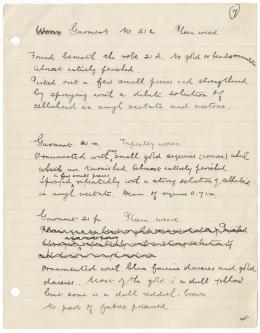 7
Garment No 21 l Plain weave
Found beneath the robe 21 d. No gold or beads
Almost entirely perished
Picked out a few small pieces and strengthened
by spraying with a dilute solution of
celluloid in amyl acetate and acetone.
Garment 21 m Tapestry woven
Ornamented with small gold sequins (convex) which
which Almost entirely perished
a few small pieces
Sprayed repeatedly with a strong solution of celluloid
in amyl acetate. Diam of sequins 0.7 cm.
Garment 21 p Plain weave
Ornamented with blue faience daisies and gold
daisies. Most of the gold is a dull yellow
but some is a dull reddish-brown
No part of fabric preserved